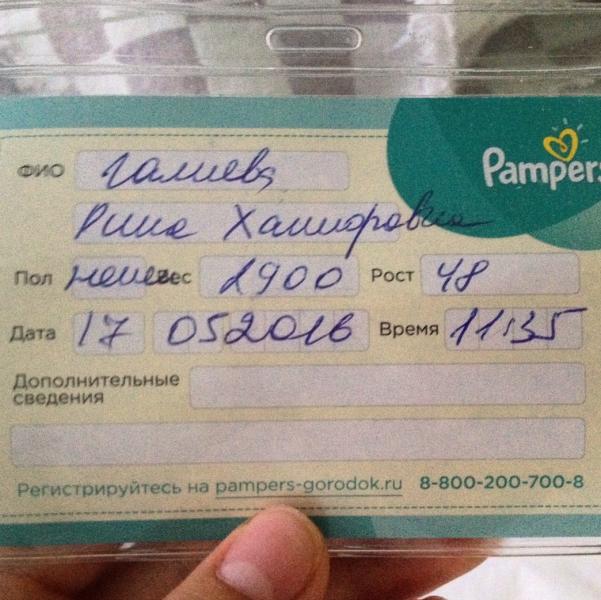 Pampers
ФИО Галиева
Рина Ханифовна
Пол жен Вес 2900 Рост 48
Дата 17 05 2016 Время 11:35
Дополнительные
сведения
Регистрируйтесь на pampers-gorodok.ru 8-800-200-700-8